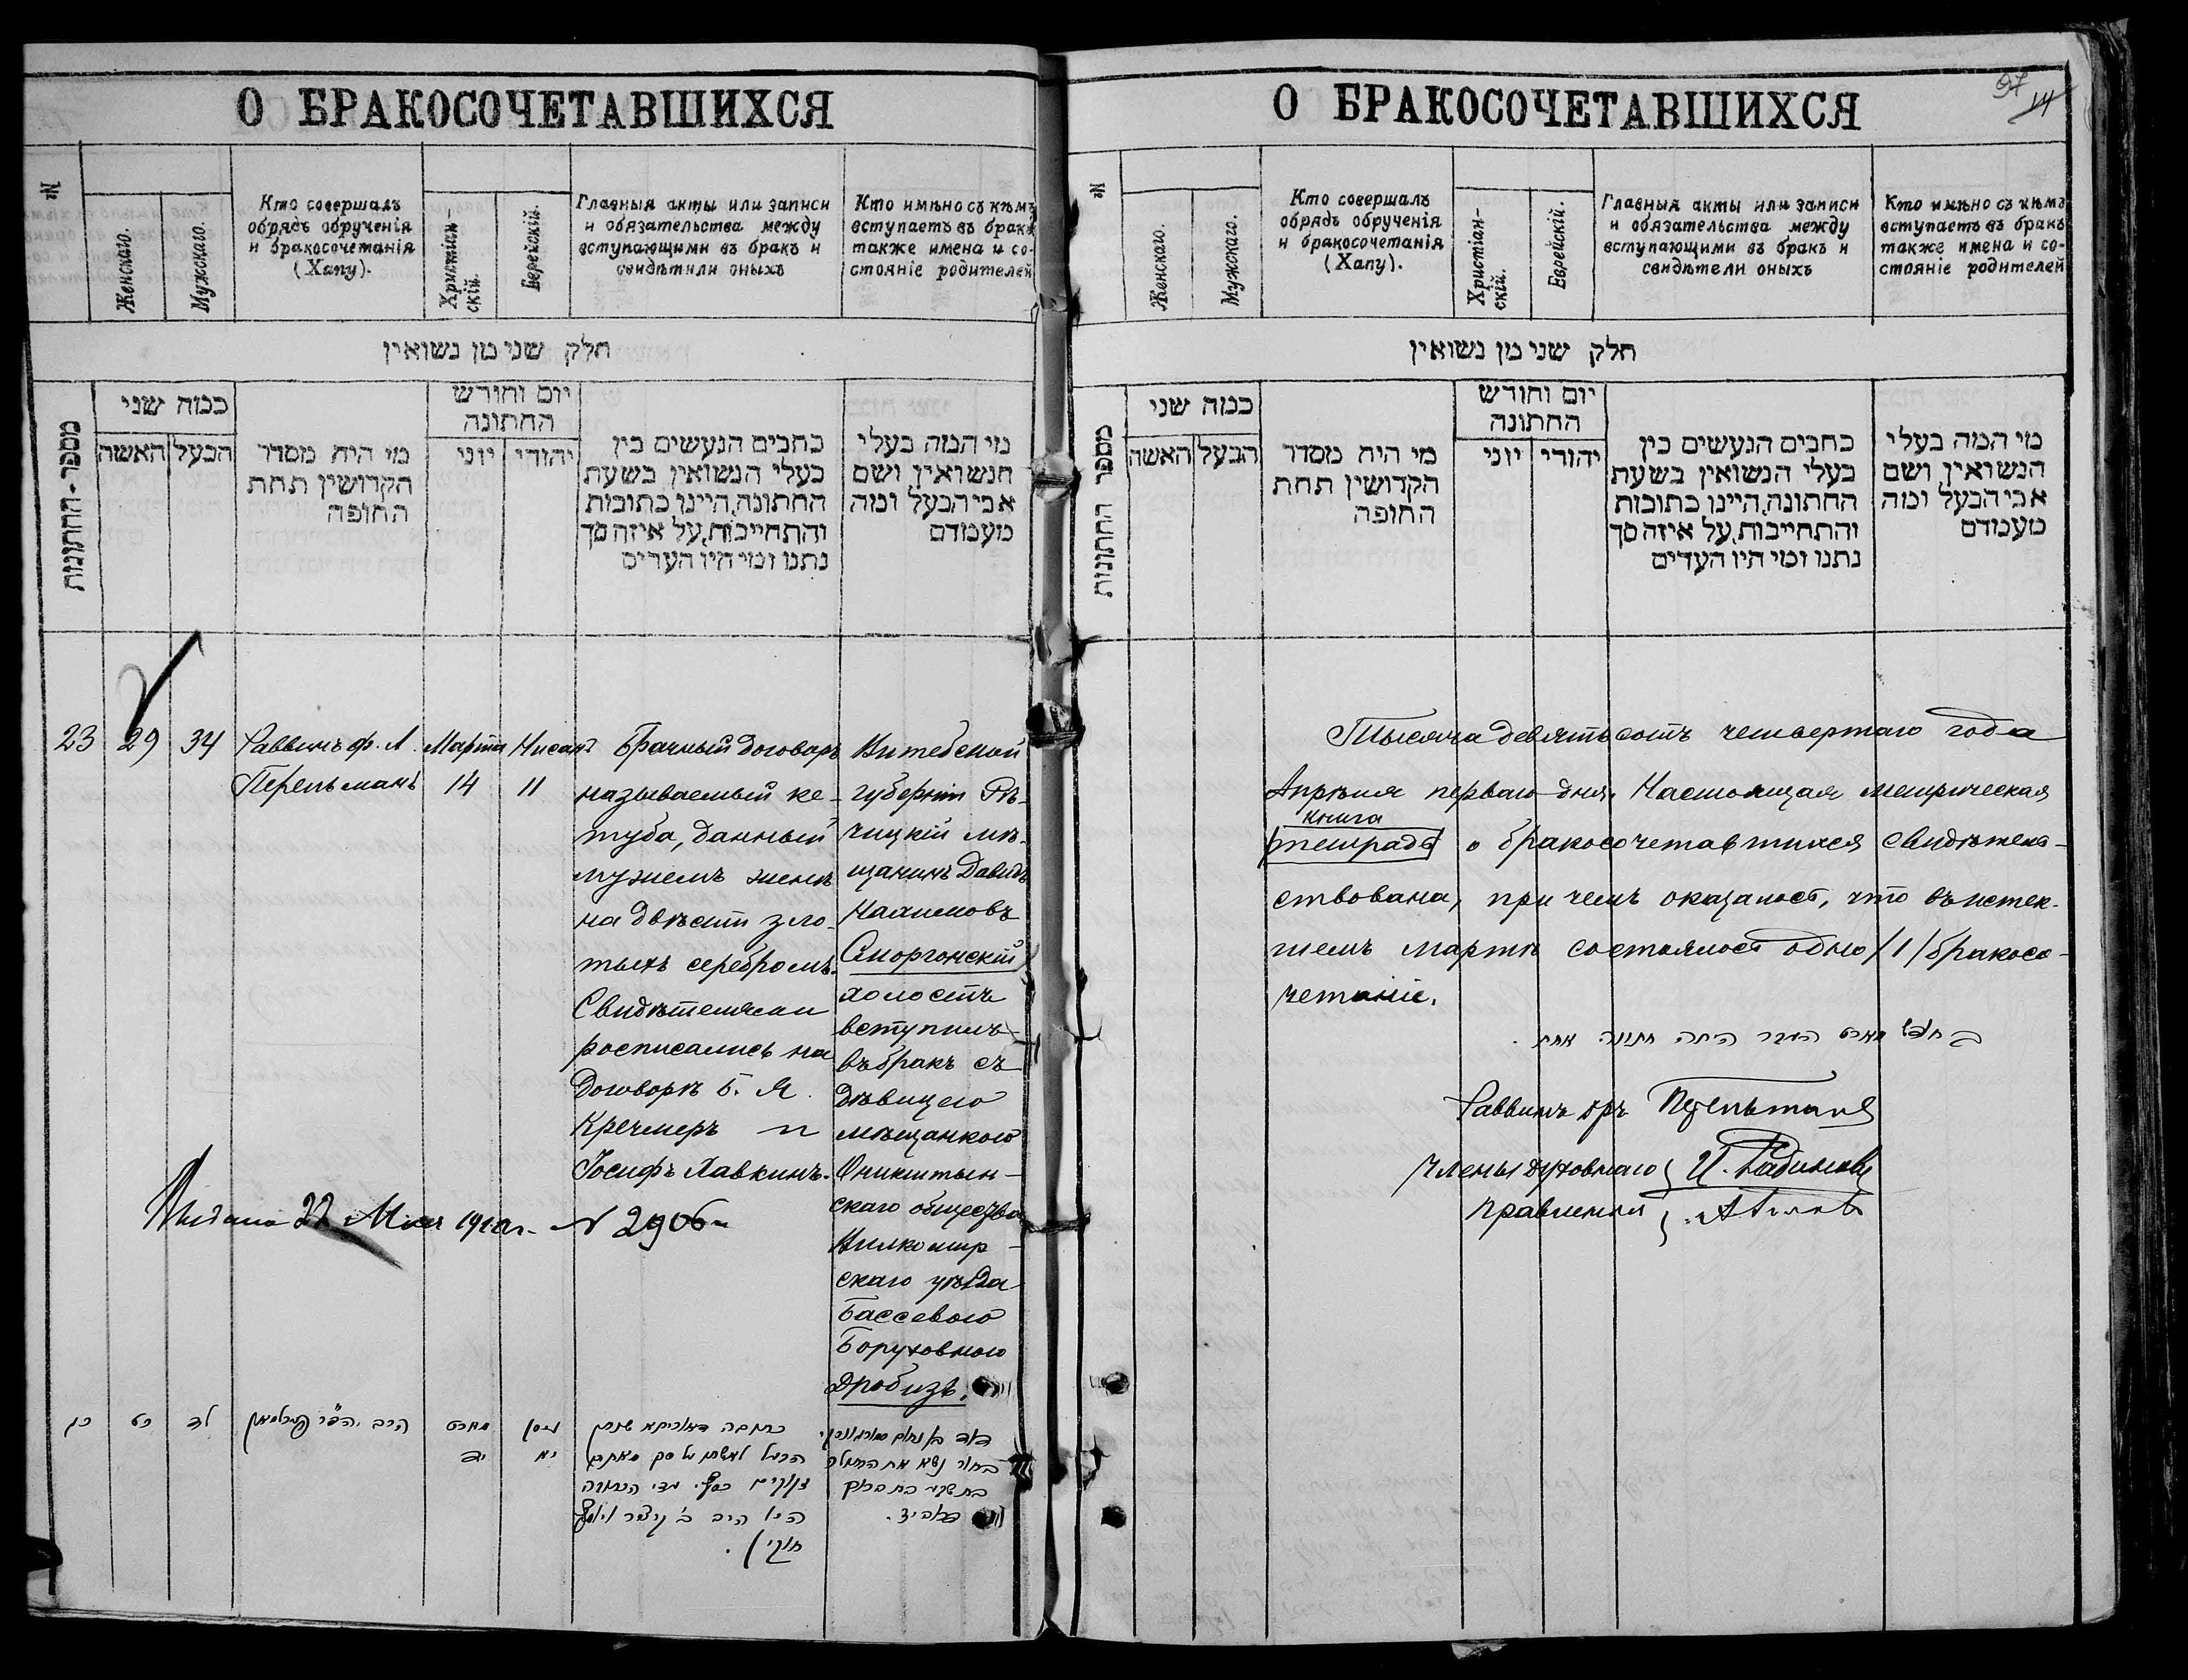 О БРАКОСОЧЕТАВШИХСЯ
№
Женскаго.
Мужскаго.
Кто совершалъ
обрядъ обрученія
и бракосочетанія
(Хапу).
Христіан-
скій.
Еврейскій.
Главныя акты или записи
и обязательства между
вступающими въ бракъ и
свидѣтили оныхъ
Кто имѣно съ кѣмъ
вступаетъ въ бракъ
также имена и со-
стояніе родителей
חלק שני מן נשואין
מספר-החתונות
כמה שני
האשה
הבעל
מי היה מסדר
הקדושין תחת
החופה
יום וחודש
החתונה
יוני
יהודי
כתבים הנעשים בין
בעלי הנשואין בשעת
החתונה, היינו כתובות
והתחייבות, על איזה סך
נתנו ומי היו העדים
מי המה בעלי
הנשואין, ושם
אבי הבעל ומה
מעמדם
23
29
34
Раввинъ Ф. Л.
Перельманъ
Марта
14
Нисанъ
11
Брачный договоръ
называемый ке-
туба, данный
мужемъ женѣ
на двѣсти зло-
тыхъ серебромъ.
Свидѣтелями
росписались на
договорѣ Б. Я.
Кречмеръ и
Іосифъ Хавкинъ.
Витебской
губерніи Рѣ-
чицкій мѣ-
щанинъ Давидъ
Нахимовъ
Сморгонскій
холостъ
вступилъ
въ бракъ съ
дѣвицею
мѣщанкою
Оникштын-
скаго общества
Вилкомир-
скаго уѣзда
Бассевою
Боруховною
Дробизъ.
Выдана 22 Мая 1910 г. № 2906
כג
כט
לד
הרב
מארט
יד
ניסן
יא
כתובה דאוריתא שנתן
הבעל לאשתו על סך מאתים
זקוקים כסף. עדי הכתובה
היו הרב ב' קרצמר ויוסף
חבקין.
דוד בן נחום סמורגונסקי
בחור נשא את הבתולה
בת שבע בת ברוך
דראביז.
О БРАКОСОЧЕТАВШИХСЯ
97
14
№
Женскаго.
Мужскаго.
Кто совершалъ
обрядъ обрученія
и бракосочетанія
(Хапу).
Христіан-
скій.
Еврейскій.
Главныя акты или записи
и обязательства между
вступающими въ бракъ и
свидѣтели оныхъ
Кто имѣно съ кѣмъ
вступаетъ въ бракъ
также имена и со-
стояніе родителей
חלק שני מן נשואין
מספר החתונות
כמה שני
האשה
הבעל
מי היה מסדר
הקדושין תחת
החופה
יום וחודש
החתונה
יוני
יהודי
כתבים הנעשים בין
בעלי הנשואין בשעת
החתונה, היינו כתובות
והתחייבות, על איזה סך
נתנו ומי היו העדים
מי המה בעלי
הנשואין, ושם
אבי הבעל ומה
מעמדם
Тысяча девятьсотъ четвертаго года
Апрѣля перваго дня. Настоящая метрическая
книга
тетрадь о бракосочетавшихся свидѣтель-
ствована, при чемъ оказалось, что въ истек-
шемъ мартѣ состоялось одно /1/ бракосо-
четаніе.
בחדש מארט העבר היתה חתונה אחת.
Раввинъ Ф. Перельманъ
Члены духовнаго
правленія
И. Рабинов